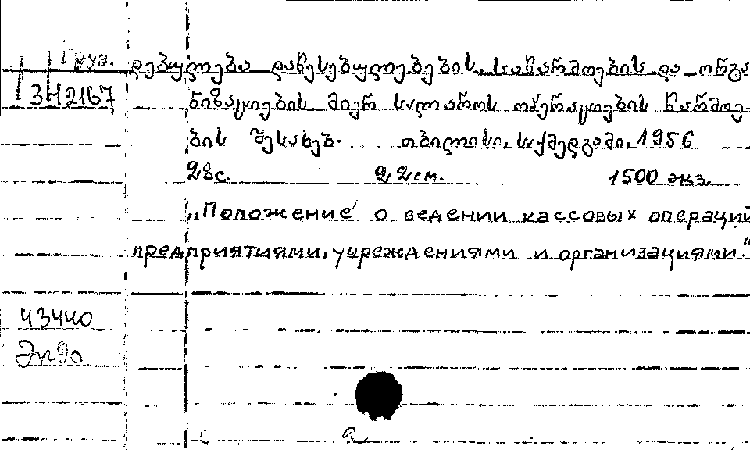 Груз. დებულება დაწესებულებების, საწარმოების და ორგა
3Н2167 ნიზაციების მიერ სალაროს ოპერაციების წარმოე
ბის შესახებ. თბილისი, საქმედგამი, 1956
28с. 22см. 1500 экз.
„Положение о ведении кассовых операций
предприятиями, учреждениями и организациями."
43440